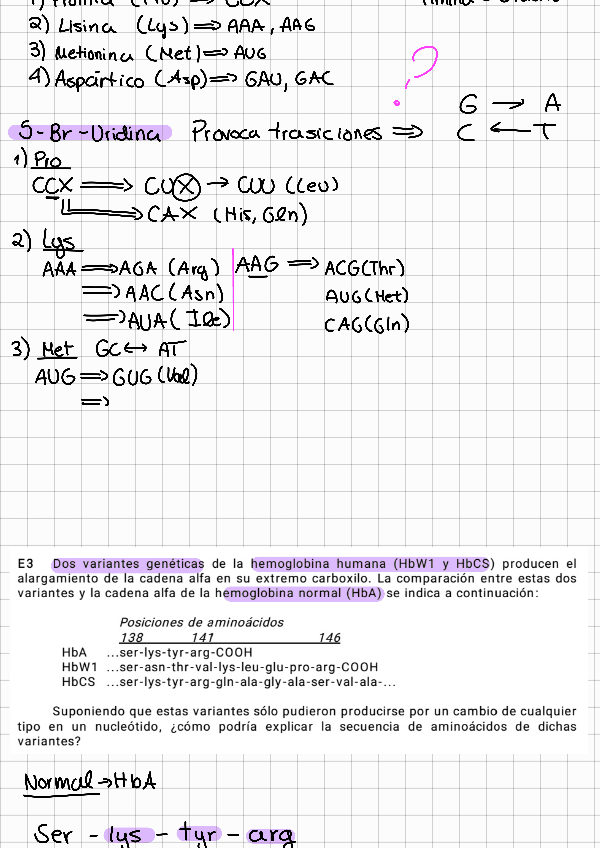 2) Lisina (Lys) ⇒ AAA, AAG
3) Metionina (Met) ⇒ AUG
4) Aspártico (Asp) ⇒ GAU, GAC
?
G → A
5-Br-Uridina Provoca trasiciones ⇒ C ← T
1) Pro
CCX ⇒ CUX → CUU (Leu)
⇒ CAX (His, Gln)
2) Lys
AAA ⇒ AGA (Arg) | AAG ⇒ ACG (Thr)
⇒ AAC (Asn) AUG (Met)
⇒ AUA (Ile) CAG (Gln)
3) Met GC ↔ AT
AUG ⇒ GUG (Val)
⇒
E3 Dos variantes genéticas de la hemoglobina humana (HbW1 y HbCS) producen el
alargamiento de la cadena alfa en su extremo carboxilo. La comparación entre estas dos
variantes y la cadena alfa de la hemoglobina normal (HbA) se indica a continuación:
Posiciones de aminoácidos
138 141 146
HbA ...ser-lys-tyr-arg-COOH
HbW1 ...ser-asn-thr-val-lys-leu-glu-pro-arg-COOH
HbCS ...ser-lys-tyr-arg-gln-ala-gly-ala-ser-val-ala-...
Suponiendo que estas variantes sólo pudieron producirse por un cambio de cualquier
tipo en un nucleótido, ¿cómo podría explicar la secuencia de aminoácidos de dichas
variantes?
Normal → HbA
Ser - lys - tyr - arg